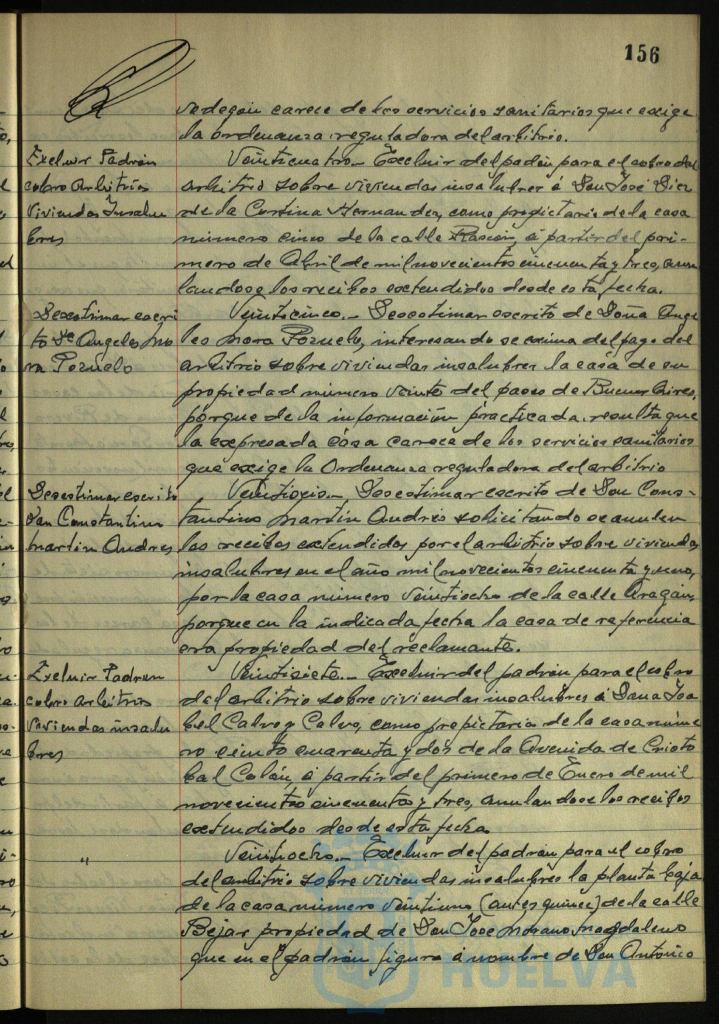 156
vadegan carece de los servicios sanitarios que exige
la ordenanza reguladora del arbitrio.
Excluir Padrón
cobro Arbitrios
Viviendas Insalu
bres
Veinticuatro.- Excluir del padón para el cobro del
arbitrio sobre viviendas insalubres á Don José Diez
de la Cortina Hernandez, como propietario de la casa
número cinco de la calle Rascón, á partir del pri-
mero de Abril de mil novecientos cincuenta y tres, anu
landose los recibos extendidos desde esta fecha.
Desestimar escri
to Dª Angeles Mo
ra Pozuelo
Veinticinco.- Desestimar escrito de Doña Ange
les Mora Pozuelo, interesando se exima del pago del
arbitrio sobre viviendas insalubres la casa de su
propiedad número veinte del paseo de Buenos Aires,
porque de la información practicada, resulta que
la expresada casa carece de los servicios sanitarios
que exige la Ordenanza reguladora del arbitrio
Desestimar escrito
Don Constantino
Martin Andres
Veintiseis.- Desestimar escrito de Don Cons-
tantino Martin Andrés solicitando se anulen
los recibos extendidos por el arbitrio sobre viviendas
insalubres en el año mil novecientos cincuenta y uno,
por la casa número veintiocho de la calle Aragón,
porque en la indicada fecha la casa de referencia
era propiedad del reclamante.
Excluir Padron
cobro arbitrios
viviendas insalu
bres
Veintisiete.- Excluir del padrón para el cobro
del arbitrio sobre viviendas insalubres á Dona Isa
bel Calvo y Calvo, como propietaria de la casa núme
ro ciento cuarenta y dos de la Avenida de Cristo
bal Colón, á partir del primero de Enero de mil
novecientos cincuenta y tres, anulandose los recibos
extendidos desde esta fecha.
"
Veintiocho.- Excluir del padrón para el cobro
del arbitrio sobre viviendas insalubres la planta baja
de la casa número veintiuno (antes quince) de la calle
Bejar propiedad de Don José Morano Magdaleno
que en el padrón figura á nombre de Don Antonio
HUELVA